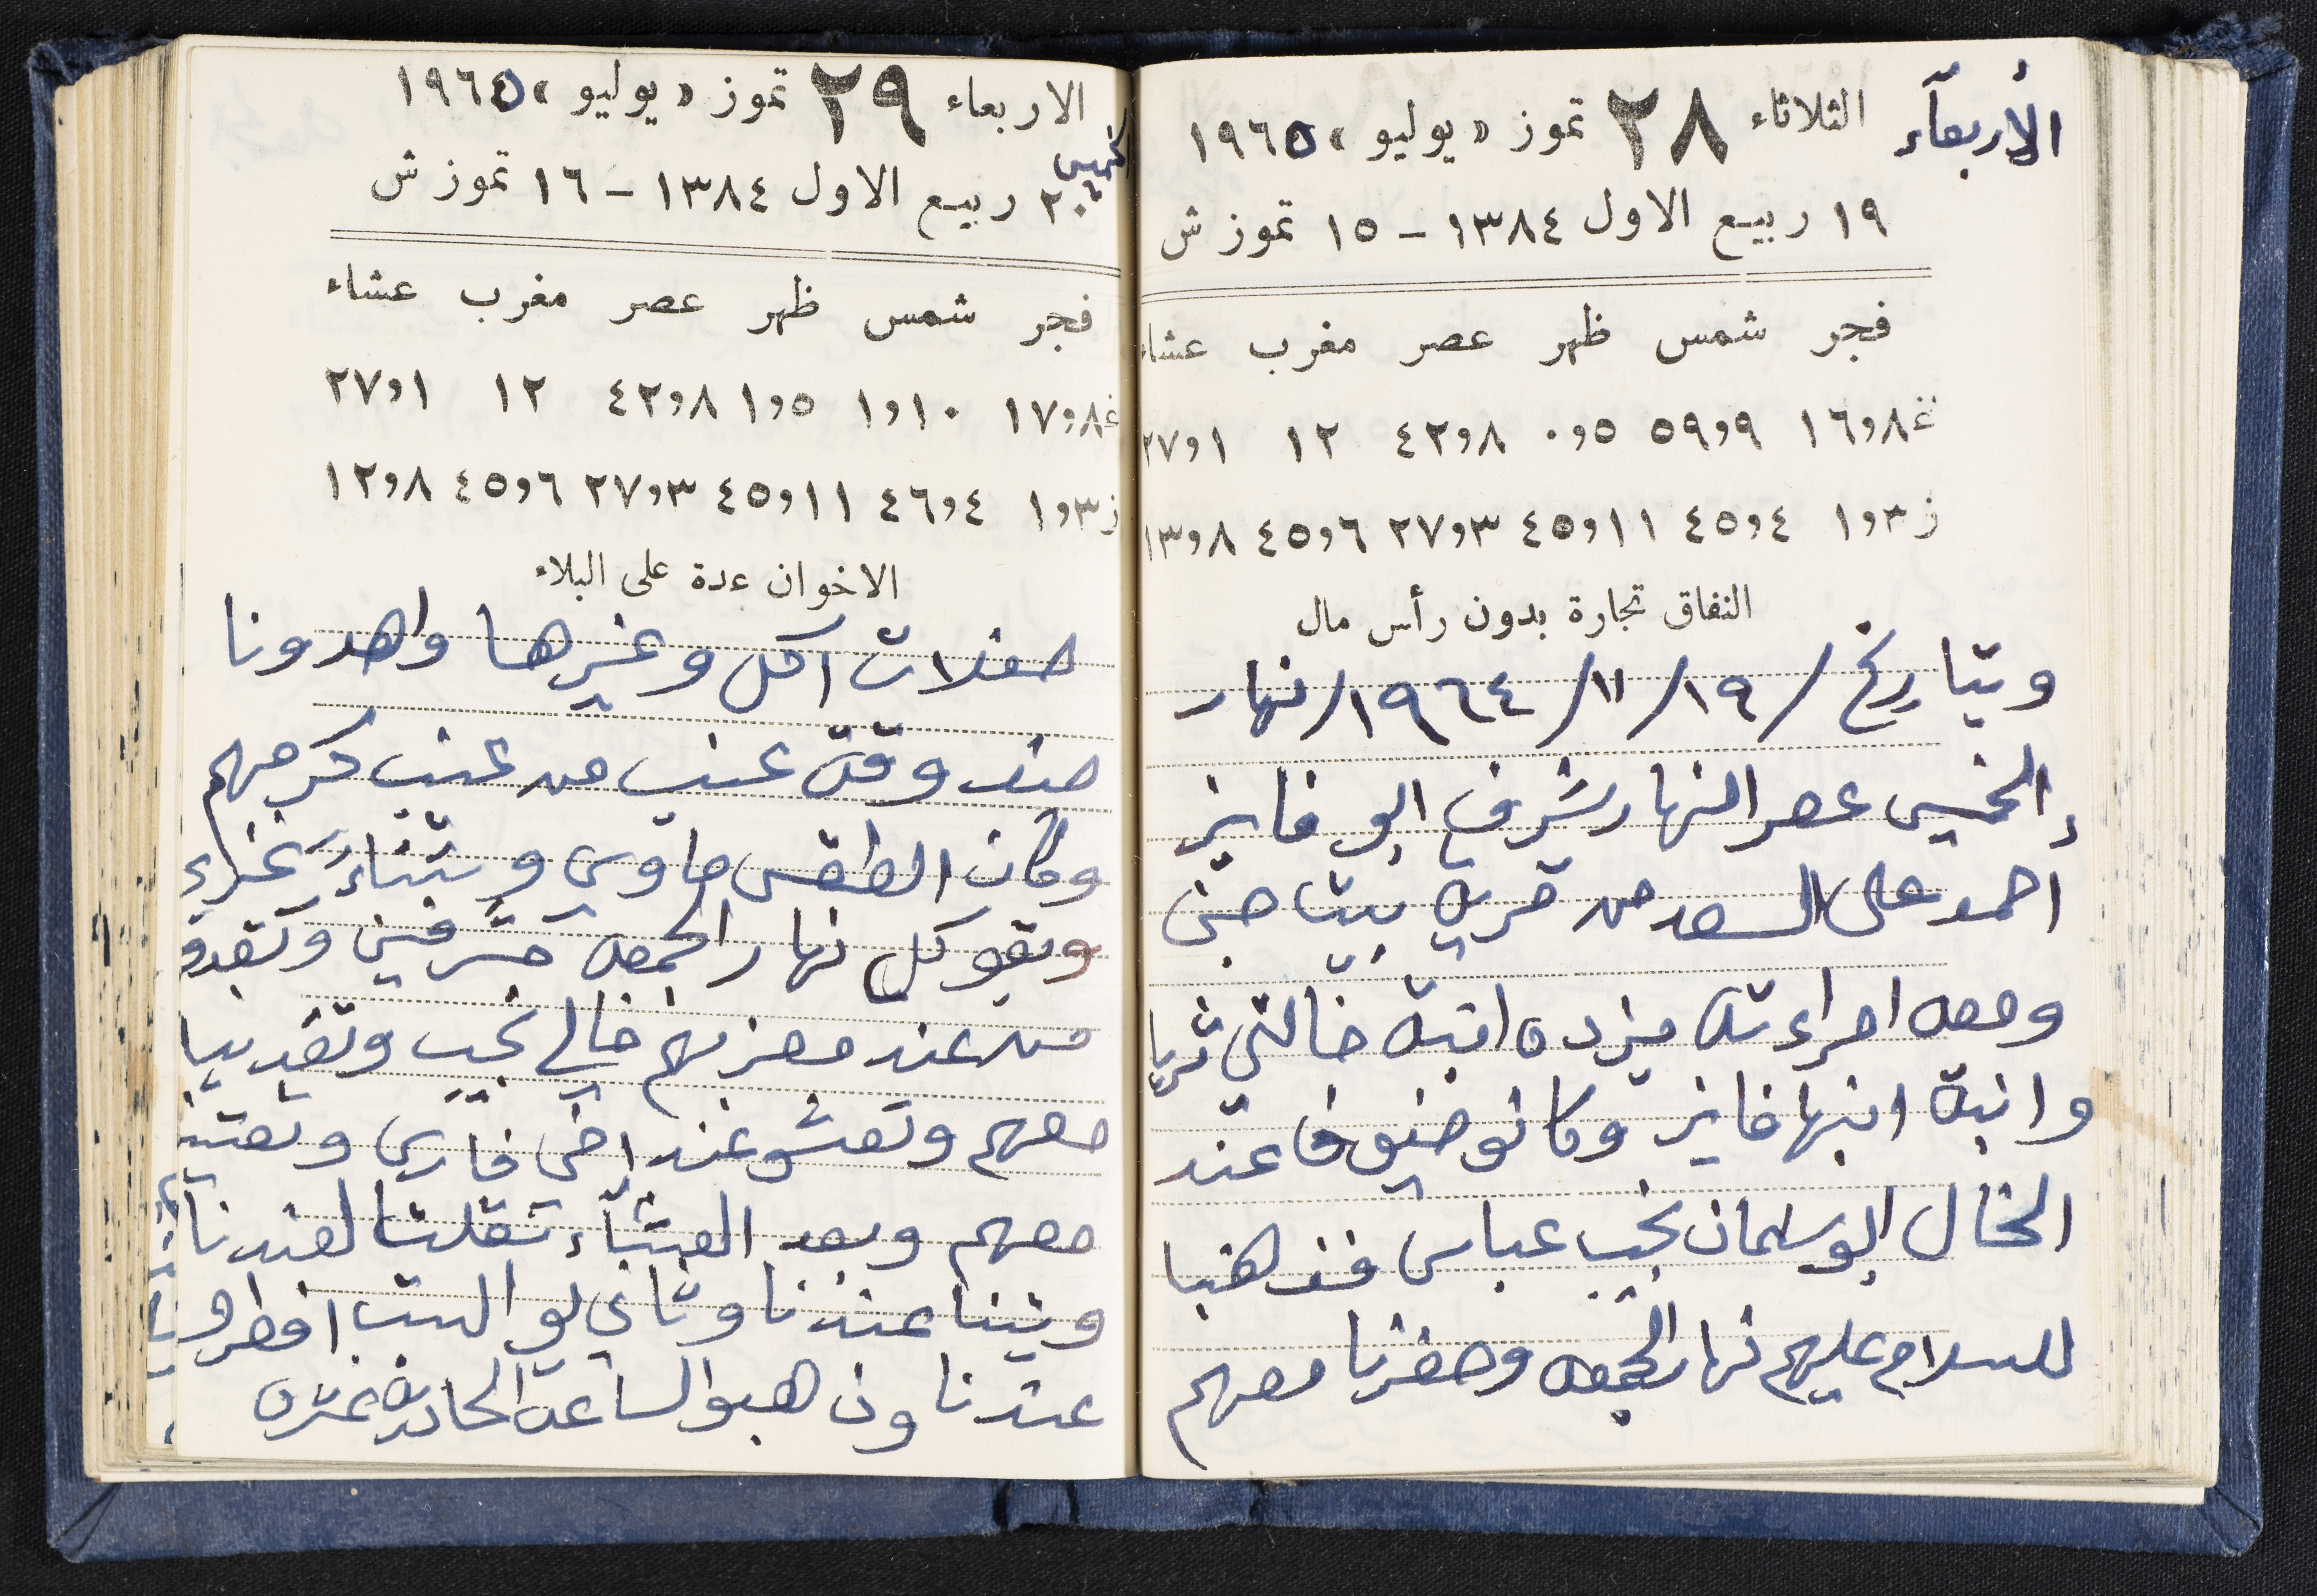 الأربعآء الثلاثاء ٢٨ تموز «يوليو» ١٩٦٥
١٩ ربيع الاول ١٣٨٤ - ١٥ تموز ش
فجر شمس ظهر عصر مغرب عشاء
غ ١٦،٨ ٥٩،٩ ٠،٥ ٤٢،٨ ١٢ ٢٧،١
ز ١،٣ ٤٥،٤ ٤٥،١١ ٢٧،٣ ٤٥،٦ ١٣،٨
النفاق تجارة بدون رأس مال
وبتاريخ /١٩/ ١١/ ١٩٦٤/ نهار
الخميس عصر النهار شرف ابو فايز
احمد علي السعد من قرية بيت جن
ومعه امراءته مزده ابنة خالتي ثريا
وابنة ابنها فايز وكانو ضيوفا عند
الخال ابو سلمان نجيب عباس فذهبنا
للسلام عليهم نهار الجمعه وحضرنا معهم
الاربعاء ٢٩ تموز «يوليو» ١٩٦٥
الخميس
٢٠ ربيع الاول ١٣٨٤ - ١٦ تموز ش
فجر شمس ظهر عصر مغرب عشاء
غ ١٧،٨ ١،١٠ ١،٥ ٤٢،٨ ١٢ ٢٧،١
ز ١،٣ ٤٦،٤ ٤٥،١١ ٢٧،٣ ٤٥،٦ ١٢،٨
الاخوان عدة على البلاء
حفلات اكل وغيرها واهدونا
صندوقة عنب من عنب كرمهم
وكان الطقس صاوي وشتاءً غزير
وبقو كل نهار الجمعه مشرفين وتغدو
من عند معزبهم خالي نجيب وتغدينا
معهم وتعشو عند اخي فارس وتعشينا
معهم وبعد العشآء نقلنا لعندنا
وبتنا عندنا وثاني يو السبت افطرو
عندنا وذهبو الساعه الحاديه عشره